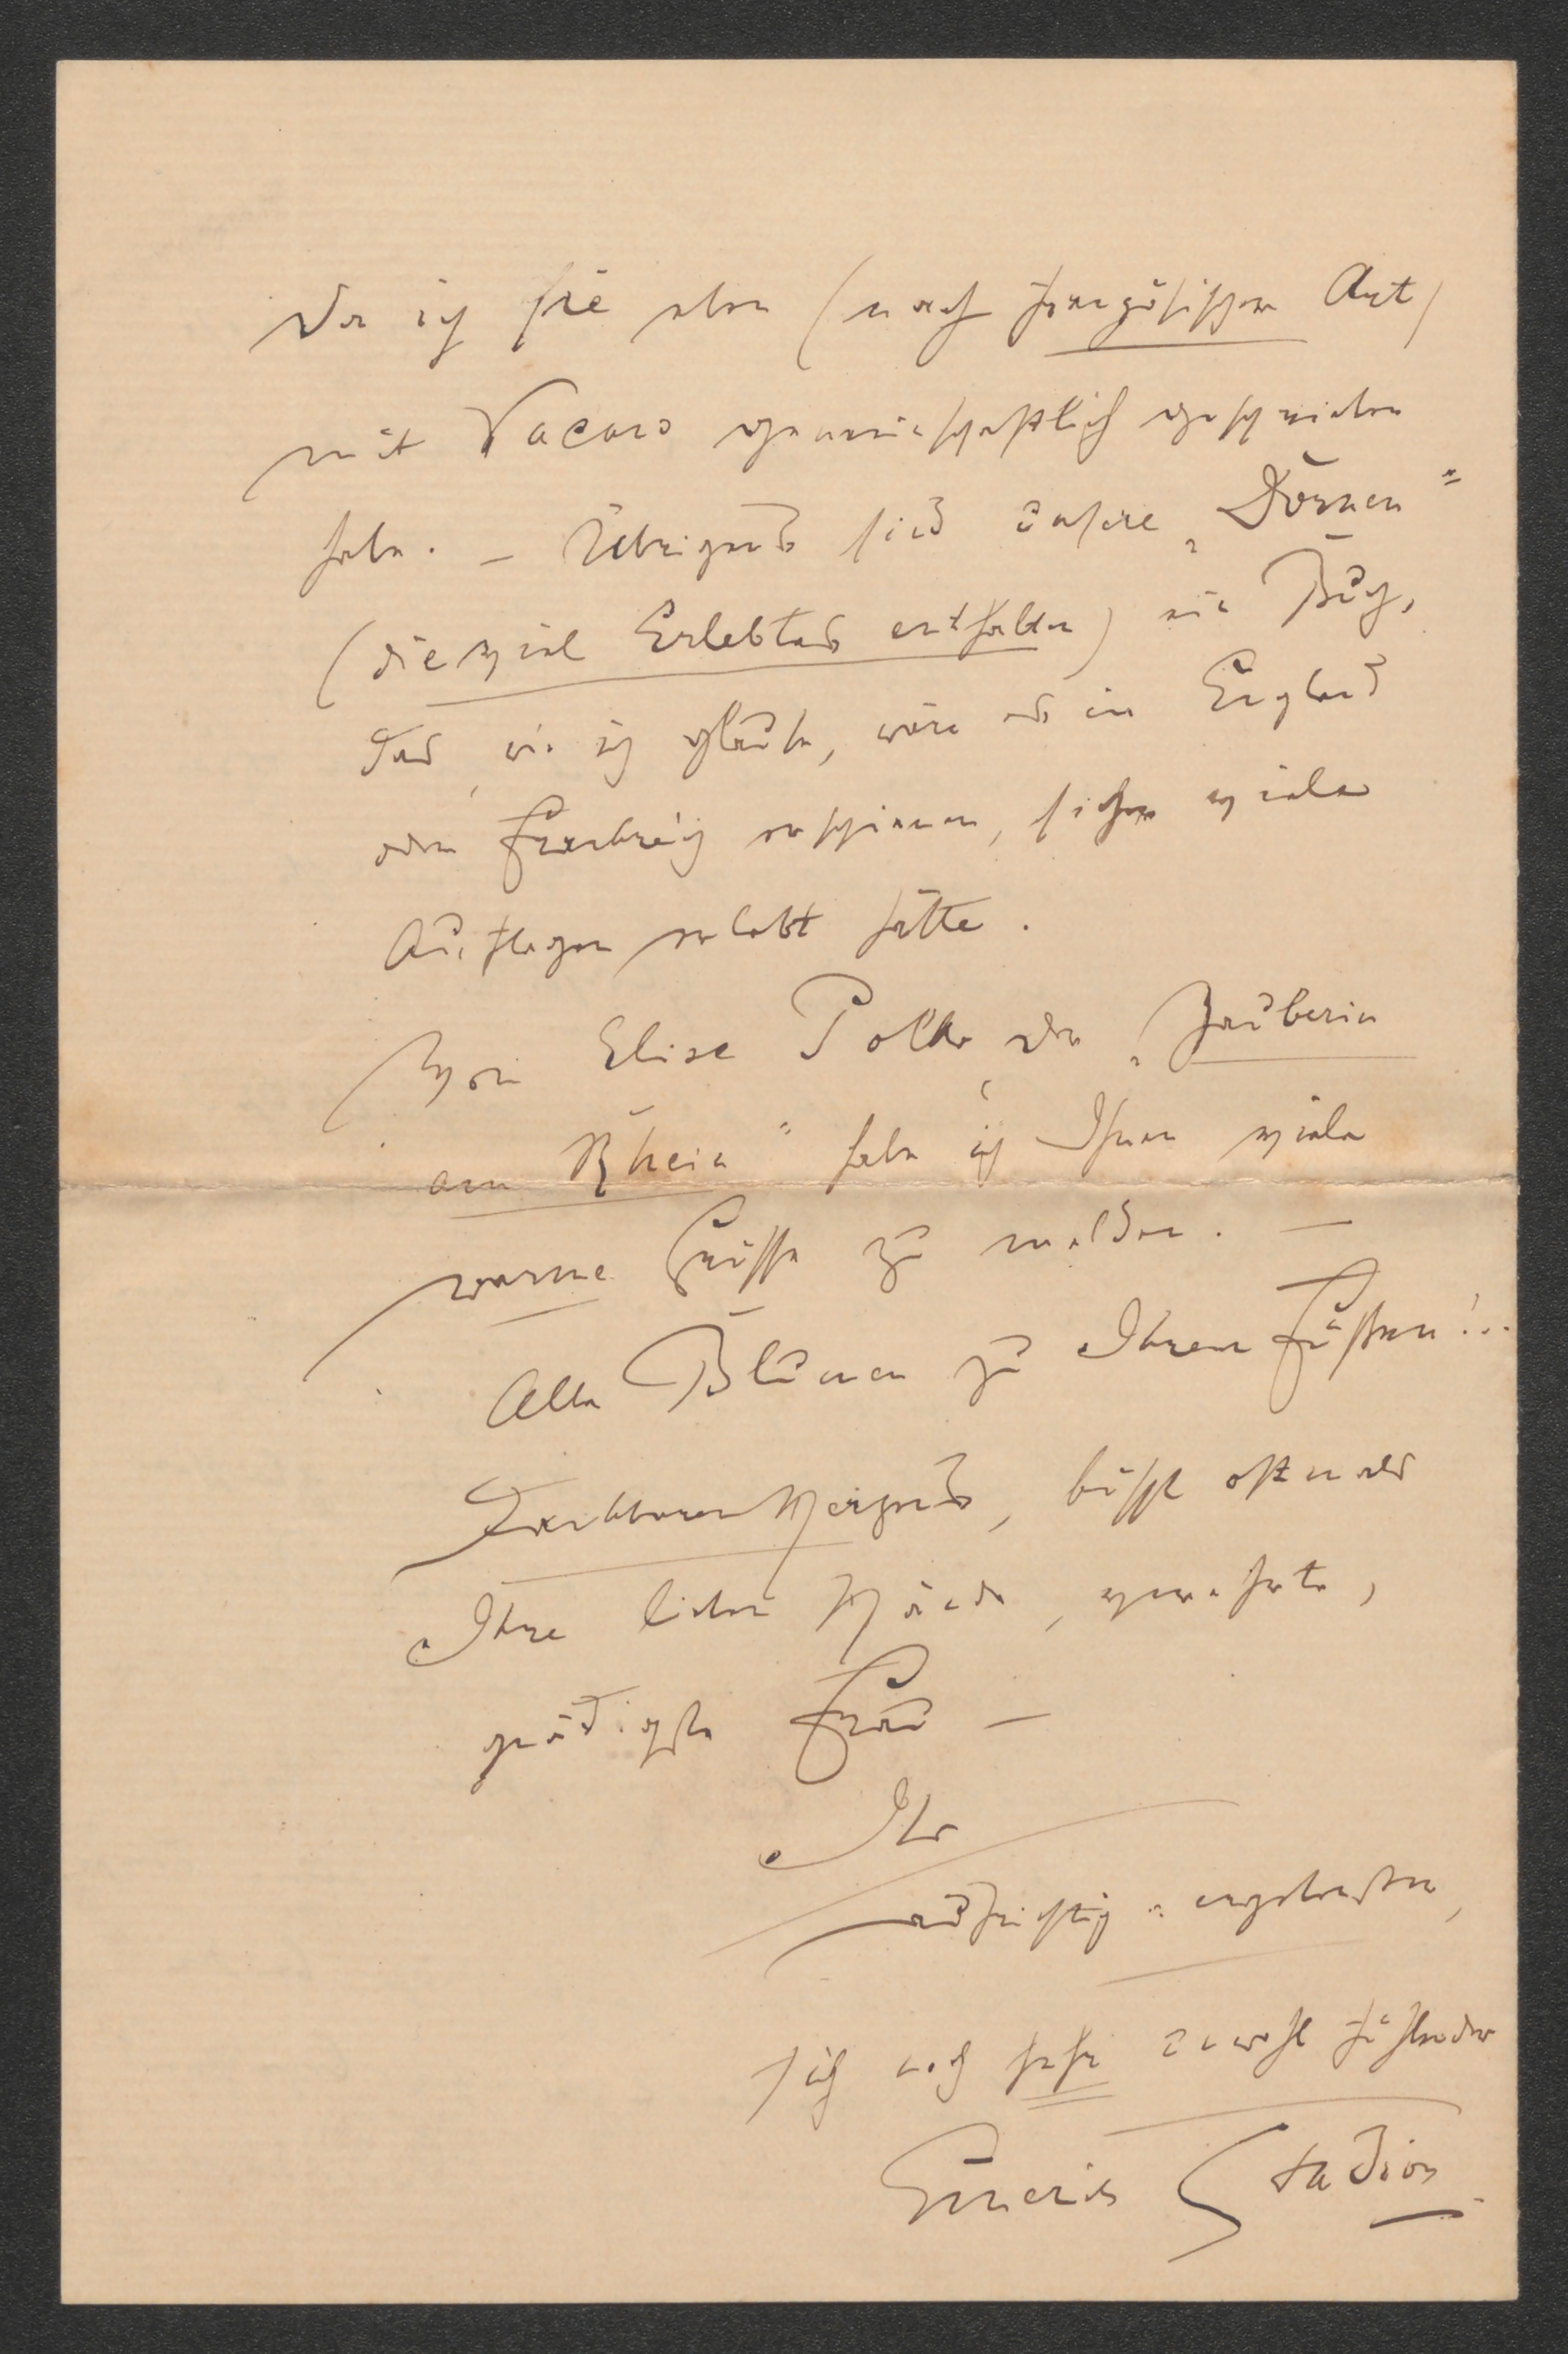 da ich sie eben (nach französischer Art)
mit Vacano gemeinschaftlich geschrieben
habe. – Übrigens sind unsere „Dornen"
(die viel Erlebtes enthalten) ein Buch,
das, wie ich glaube, wäre es in England
oder Frankreich erschienen, sicher viele
Auflagen erlebt hätte.
Von Elise Polko, der „Zauberin
am Rhein" habe ich Ihnen viele
warme Grüsse zu melden. –
Alle Blumen zu Ihren Füßen!..
Dankbaren Herzens, küsst oftmals
Ihre lieben Hände, verehrte,
gnädigste Frau –
Ihr
aufrichtig ergebenster,
sich noch sehr unwohl fühlender
Emerich Stadion